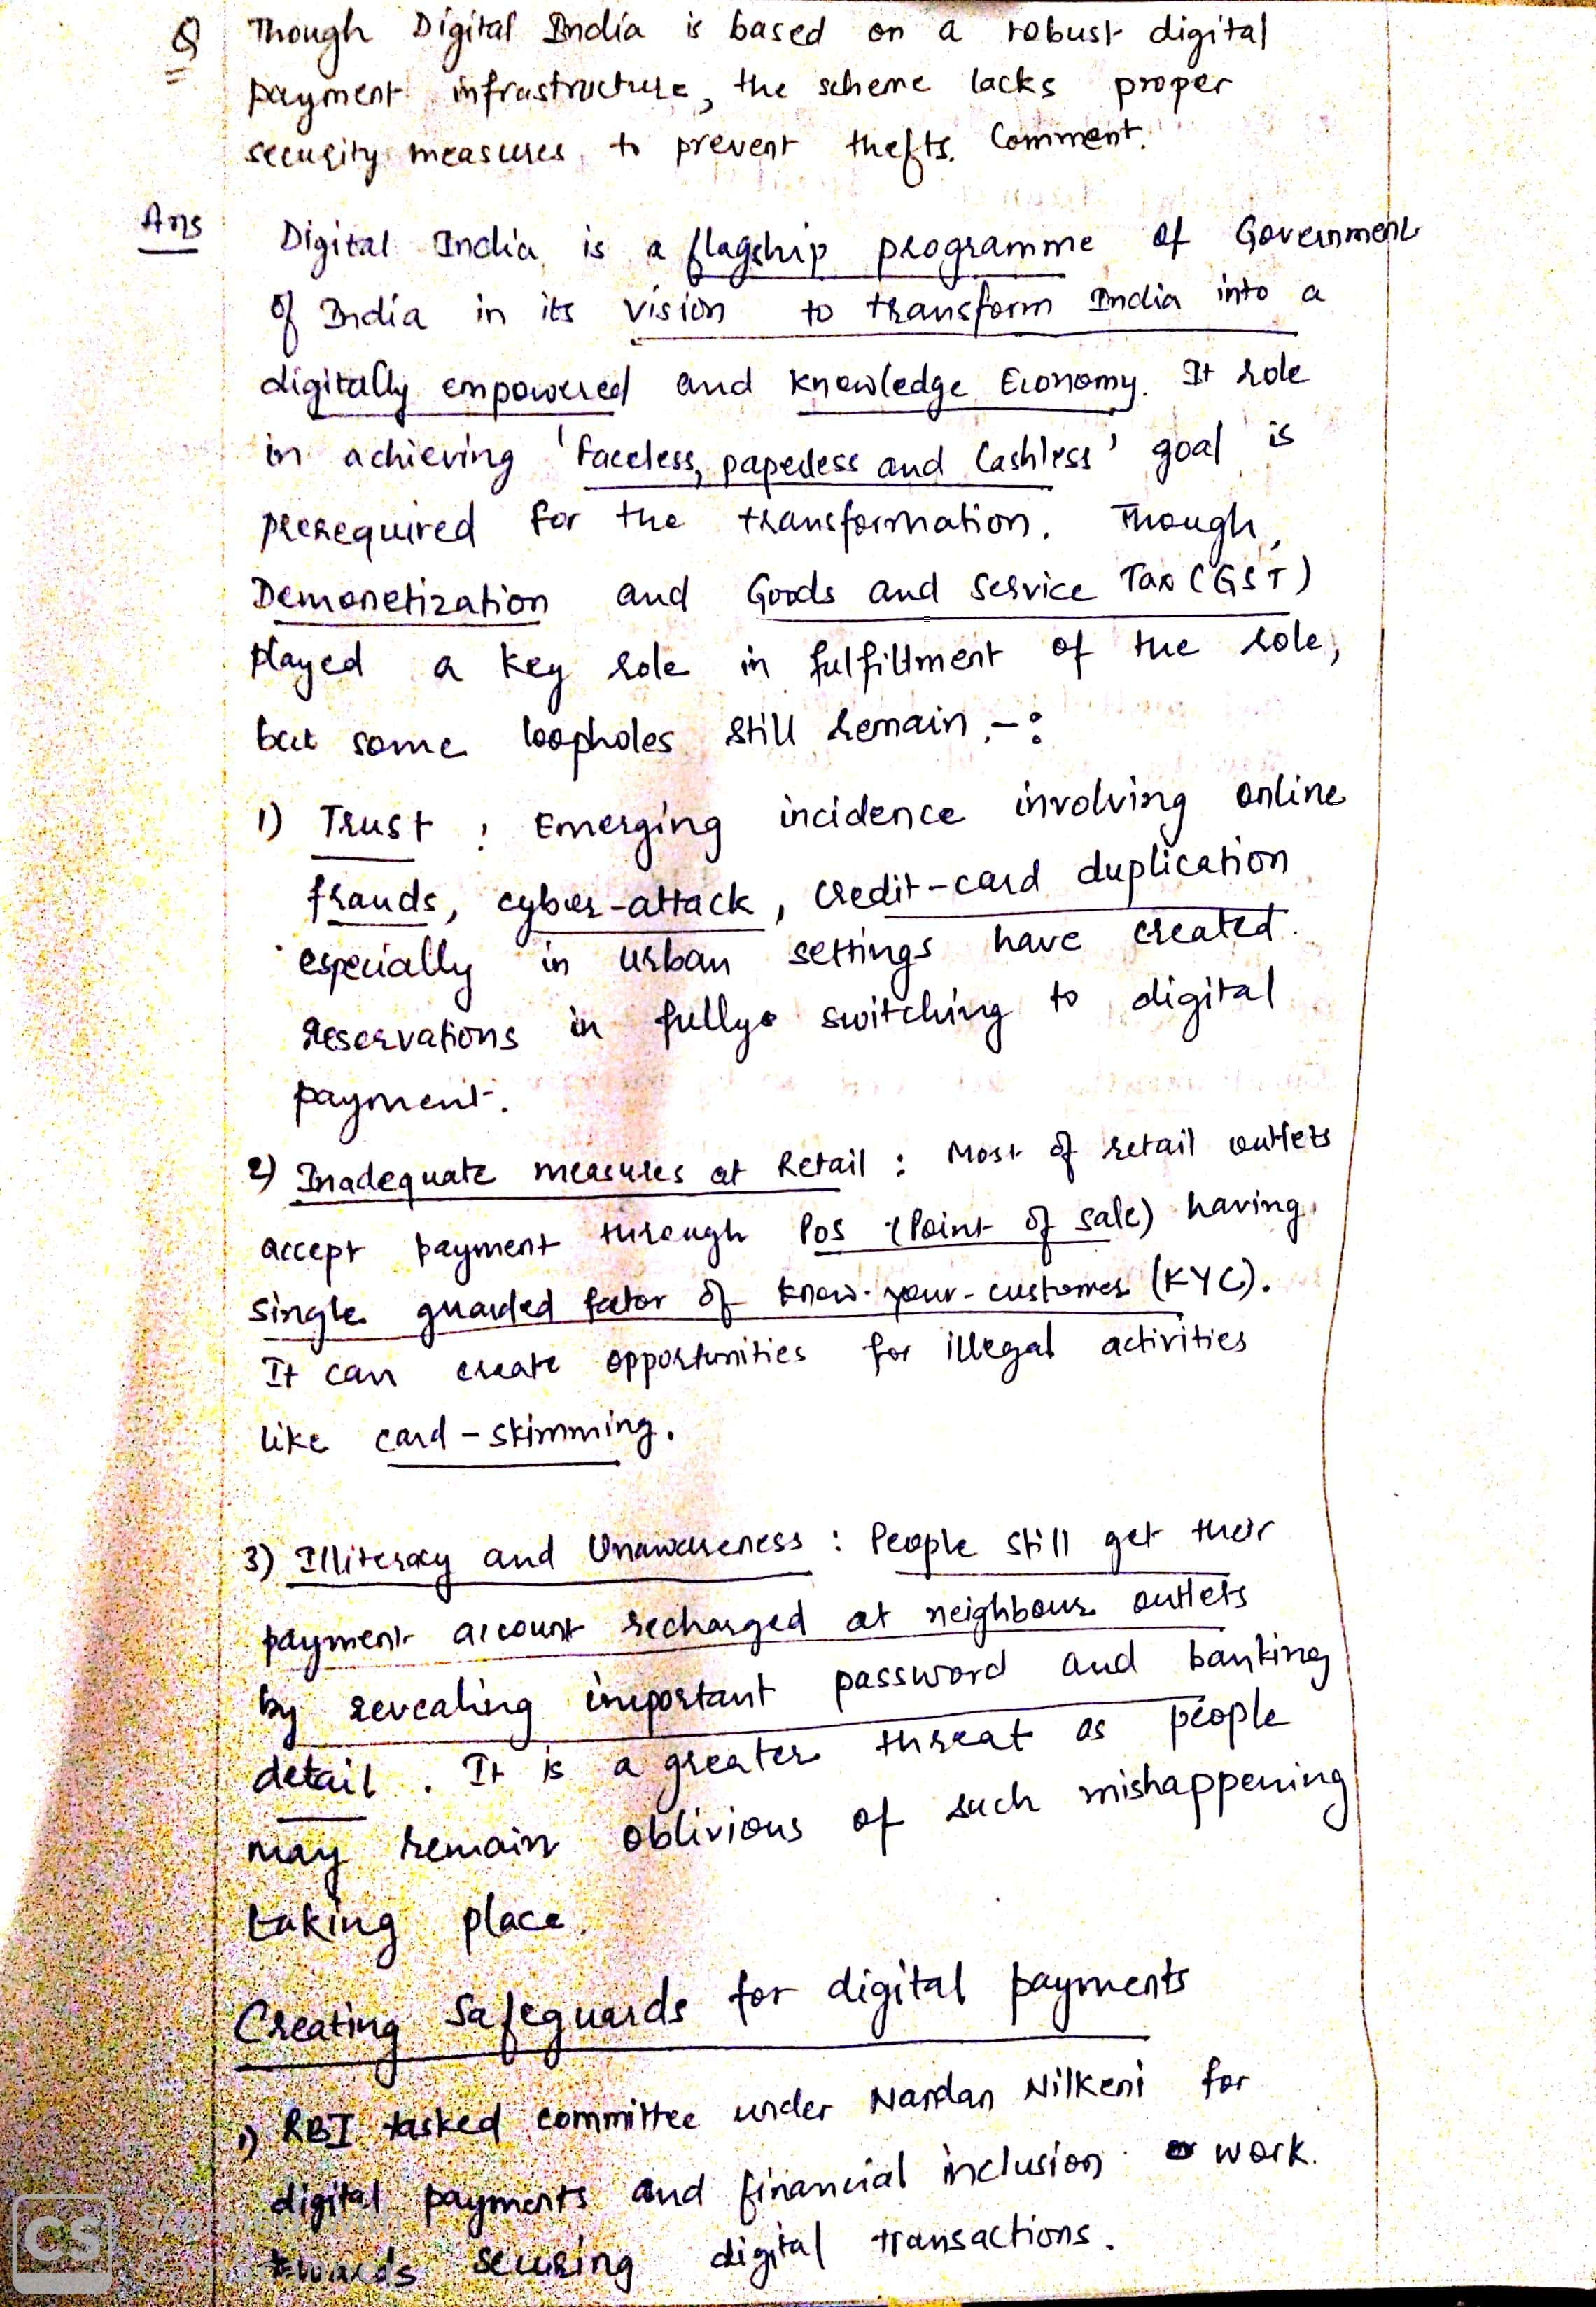 Q Though Digital India is based on a robust digital
payment infrastructure, the scheme lacks proper
security measures to prevent thefts. Comment.
Ans Digital India is a flagship programme of Government
of India in its vision to transform India into a
digitally empowered and knowledge Economy. It role
in achieving 'faceless, paperless and Cashless' goal is
prerequired for the transformation. Though,
Demonetization and Goods and Service Tax (GST)
played a key role in fulfillment of the role,
but some loopholes still remain -:
1) Trust : Emerging incidence involving online
frauds, cyber-attack, credit-card duplication
especially in urban settings have created
reservations in fully switching to digital
payment.
2) Inadequate measures at Retail : Most of retail outlets
accept payment through Pos (Point of sale) having
single guarded factor of know-your-customer (KYC).
It can create opportunities for illegal activities
like card-skimming.
3) Illiteracy and Unawareness : People still get their
payment account recharged at neighbour outlets
by revealing important password and banking
detail. It is a greater threat as people
may remain oblivious of such mishappening
taking place.
Creating Safeguards for digital payments
1) RBI tasked committee under Nandan Nilkeni for
digital payments and financial inclusion work
towards securing digital transactions.
CS